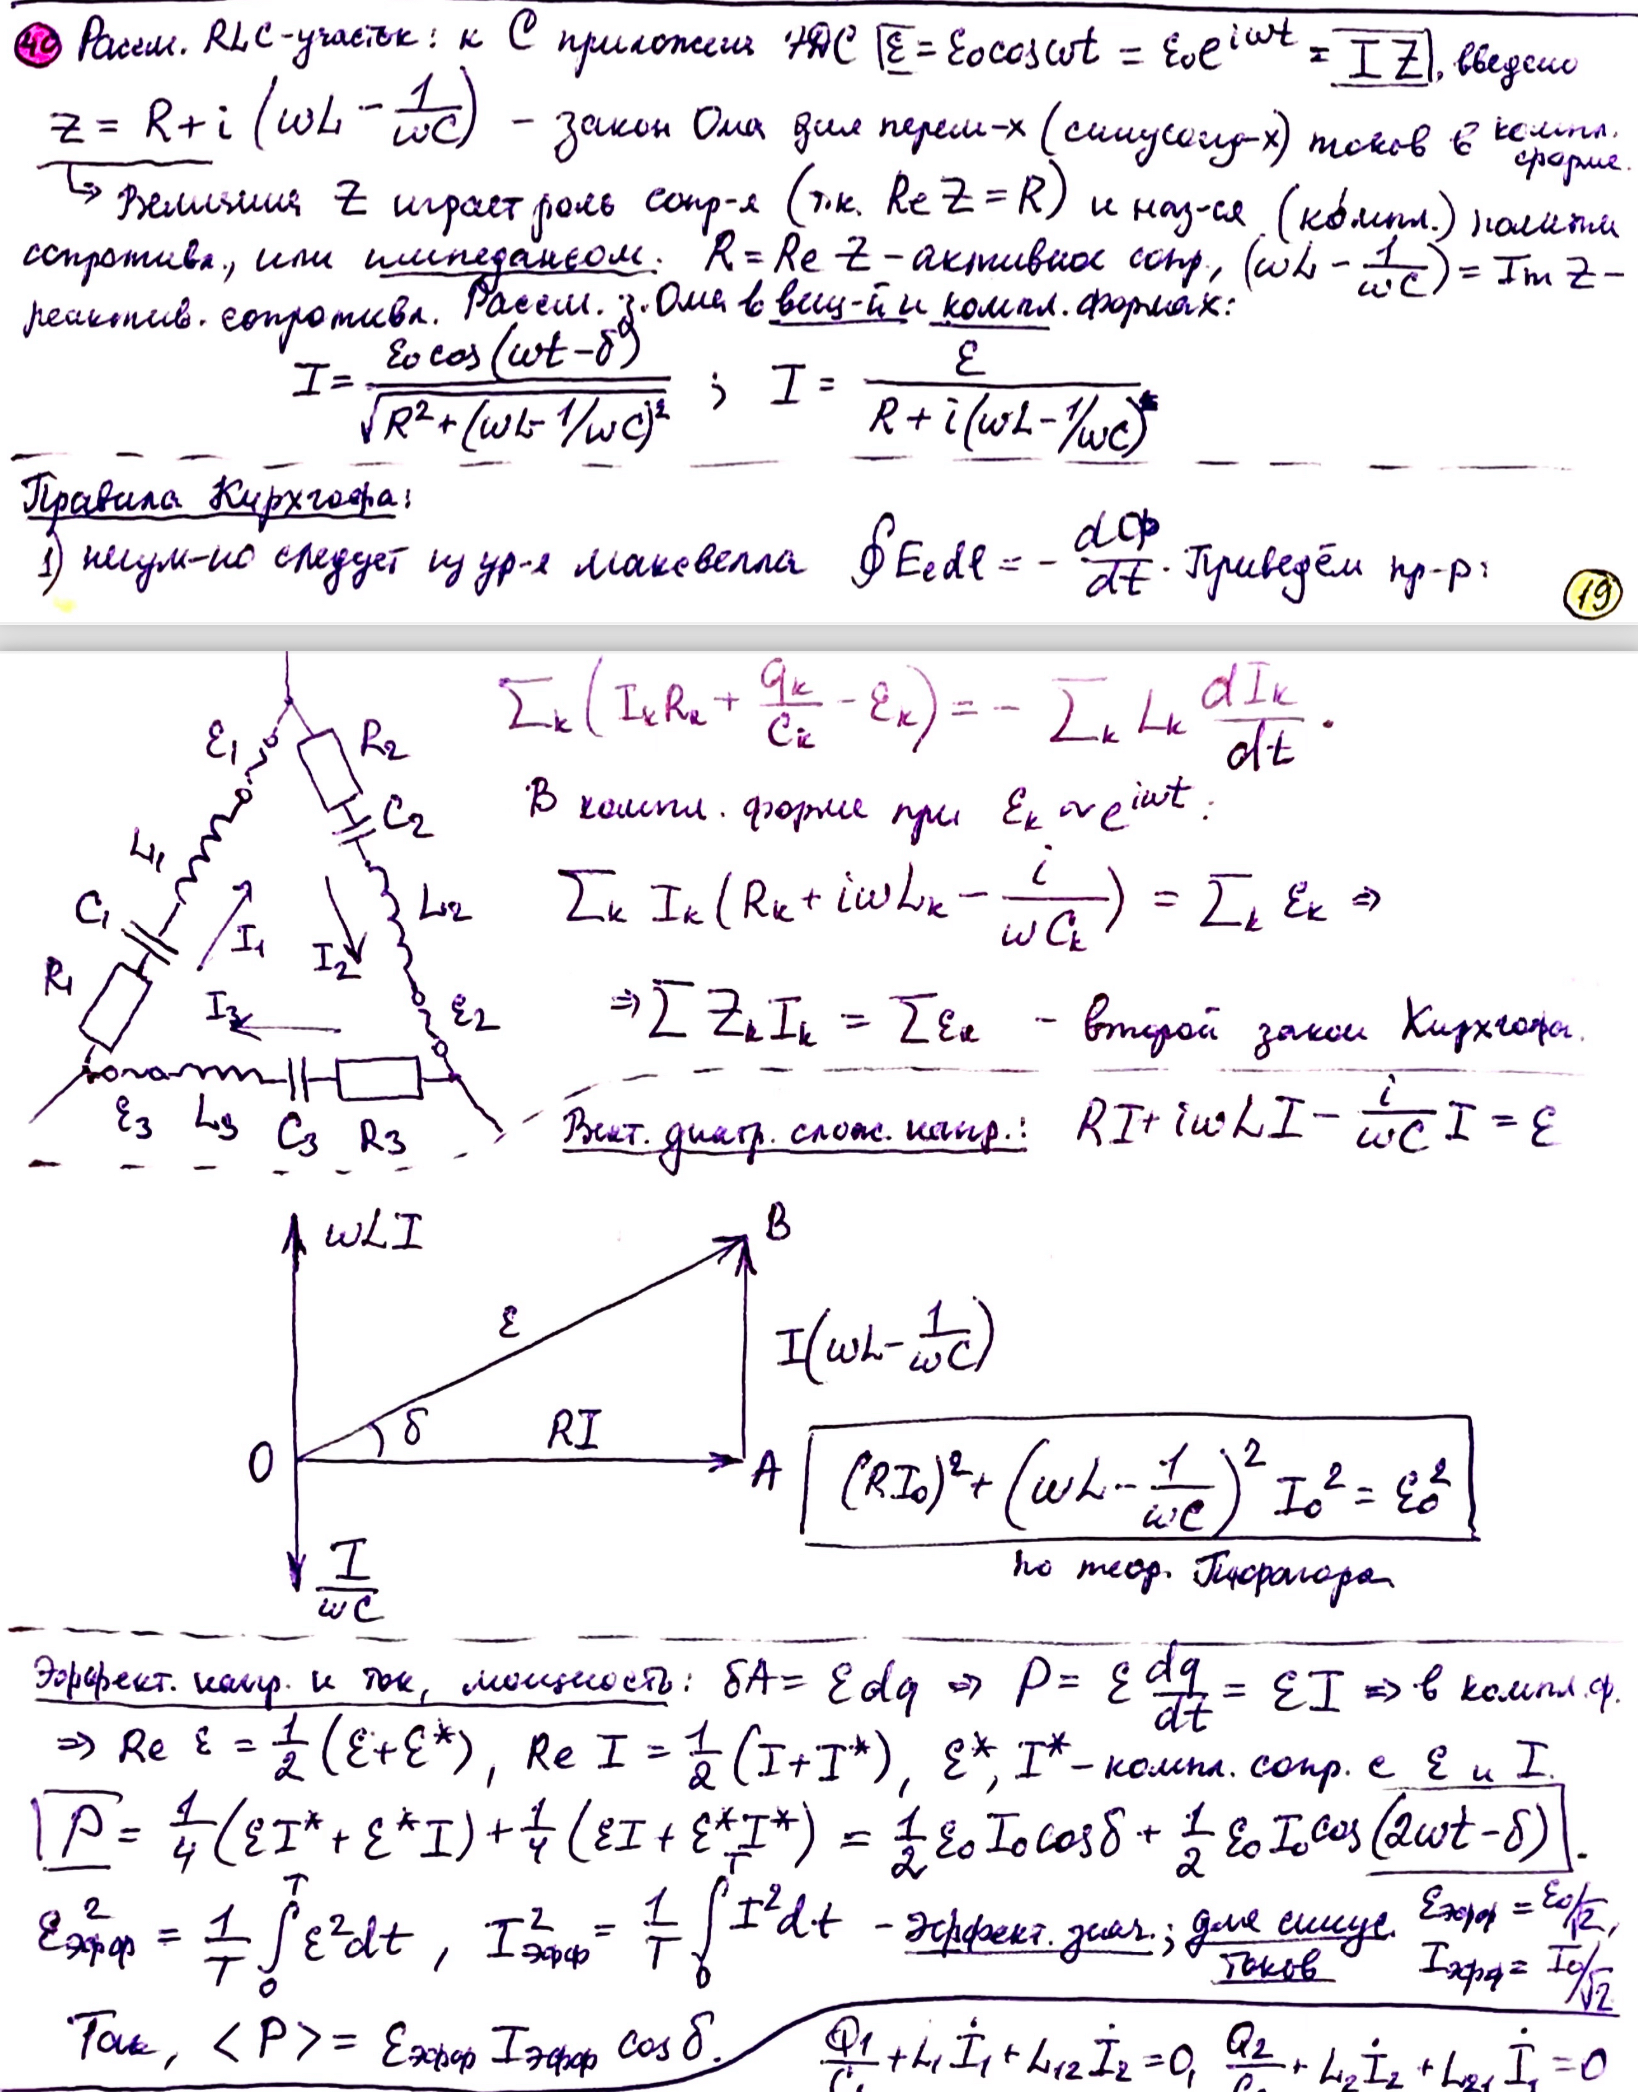 40 Рассм. RLC-участок: к С приложена ЭДС ℰ = ℰ₀cosωt = ℰ₀e^{iωt} = IZ, введено
Z = R + i(ωL - 1/ωC) - закон Ома для перем-х (синусоид-х) токов в компл. форме.
↳ Величина Z играет роль сопр-я (т.к. Re Z = R) и наз-ся (компл.) полным
сопротивл., или импедансом. R = Re Z - активное сопр., (ωL - 1/ωC) = Im Z -
реактив. сопротивл. Рассм. з. Ома в вещ-й и компл. формах:
I = ℰ₀cos(ωt-δ)/√(R² + (ωL-1/ωC)²) ; I = ℰ/(R + i(ωL-1/ωC))
Правила Кирхгофа:
1) следует из ур-я Максвелла ∮Eₑdl = - dФ/dt. Приведём пр-р:
19
Σₖ(IₖRₖ + qₖ/Cₖ - ℰₖ) = - Σₖ Lₖ dIₖ/dt.
В компл. форме при ℰₖ ~ e^{iωt}:
Σₖ Iₖ(Rₖ + iωLₖ - i/ωCₖ) = Σₖ ℰₖ ⇒
⇒ Σ ZₖIₖ = Σℰₖ - второй закон Кирхгофа.
ℰ₁ R₂
L₁ C₂
C₁ I₁ I₂ L₂
R₁ I₃ ℰ₂
ℰ₃ L₃ C₃ R₃
Вект. диагр. слож. напр.: RI + iωLI - i/ωC I = ℰ
ωLI
B
ℰ
I(ωL - 1/ωC)
δ RI
O A
(RI₀)² + (ωL - 1/ωC)² I₀² = ℰ₀²
по теор. Пифагора
I/ωC
Эффект. напр. и ток, мощность: δA = ℰdq ⇒ P = ℰ dq/dt = ℰI ⇒ в компл. ф.
⇒ Re ℰ = 1/2 (ℰ+ℰ*), Re I = 1/2 (I+I*), ℰ*, I* - компл. сопр. с ℰ и I.
P = 1/4 (ℰI* + ℰ*I) + 1/4 (ℰI + ℰ*I*) = 1/2 ℰ₀I₀cosδ + 1/2 ℰ₀I₀cos(2ωt-δ).
ℰ²эфф = 1/T ∫₀ᵀ ℰ²dt, I²эфф = 1/T ∫₀ᵀ I²dt - эффект. знач.; для синус. токов ℰэфф = ℰ₀/√2,
Iэфф = I₀/√2
Так, <P> = ℰэфф Iэфф cosδ.
Q₁/C₁ + L₁İ₁ + L₁₂İ₂ = 0, Q₂/C₂ + L₂İ₂ + L₂₁İ₁ = 0